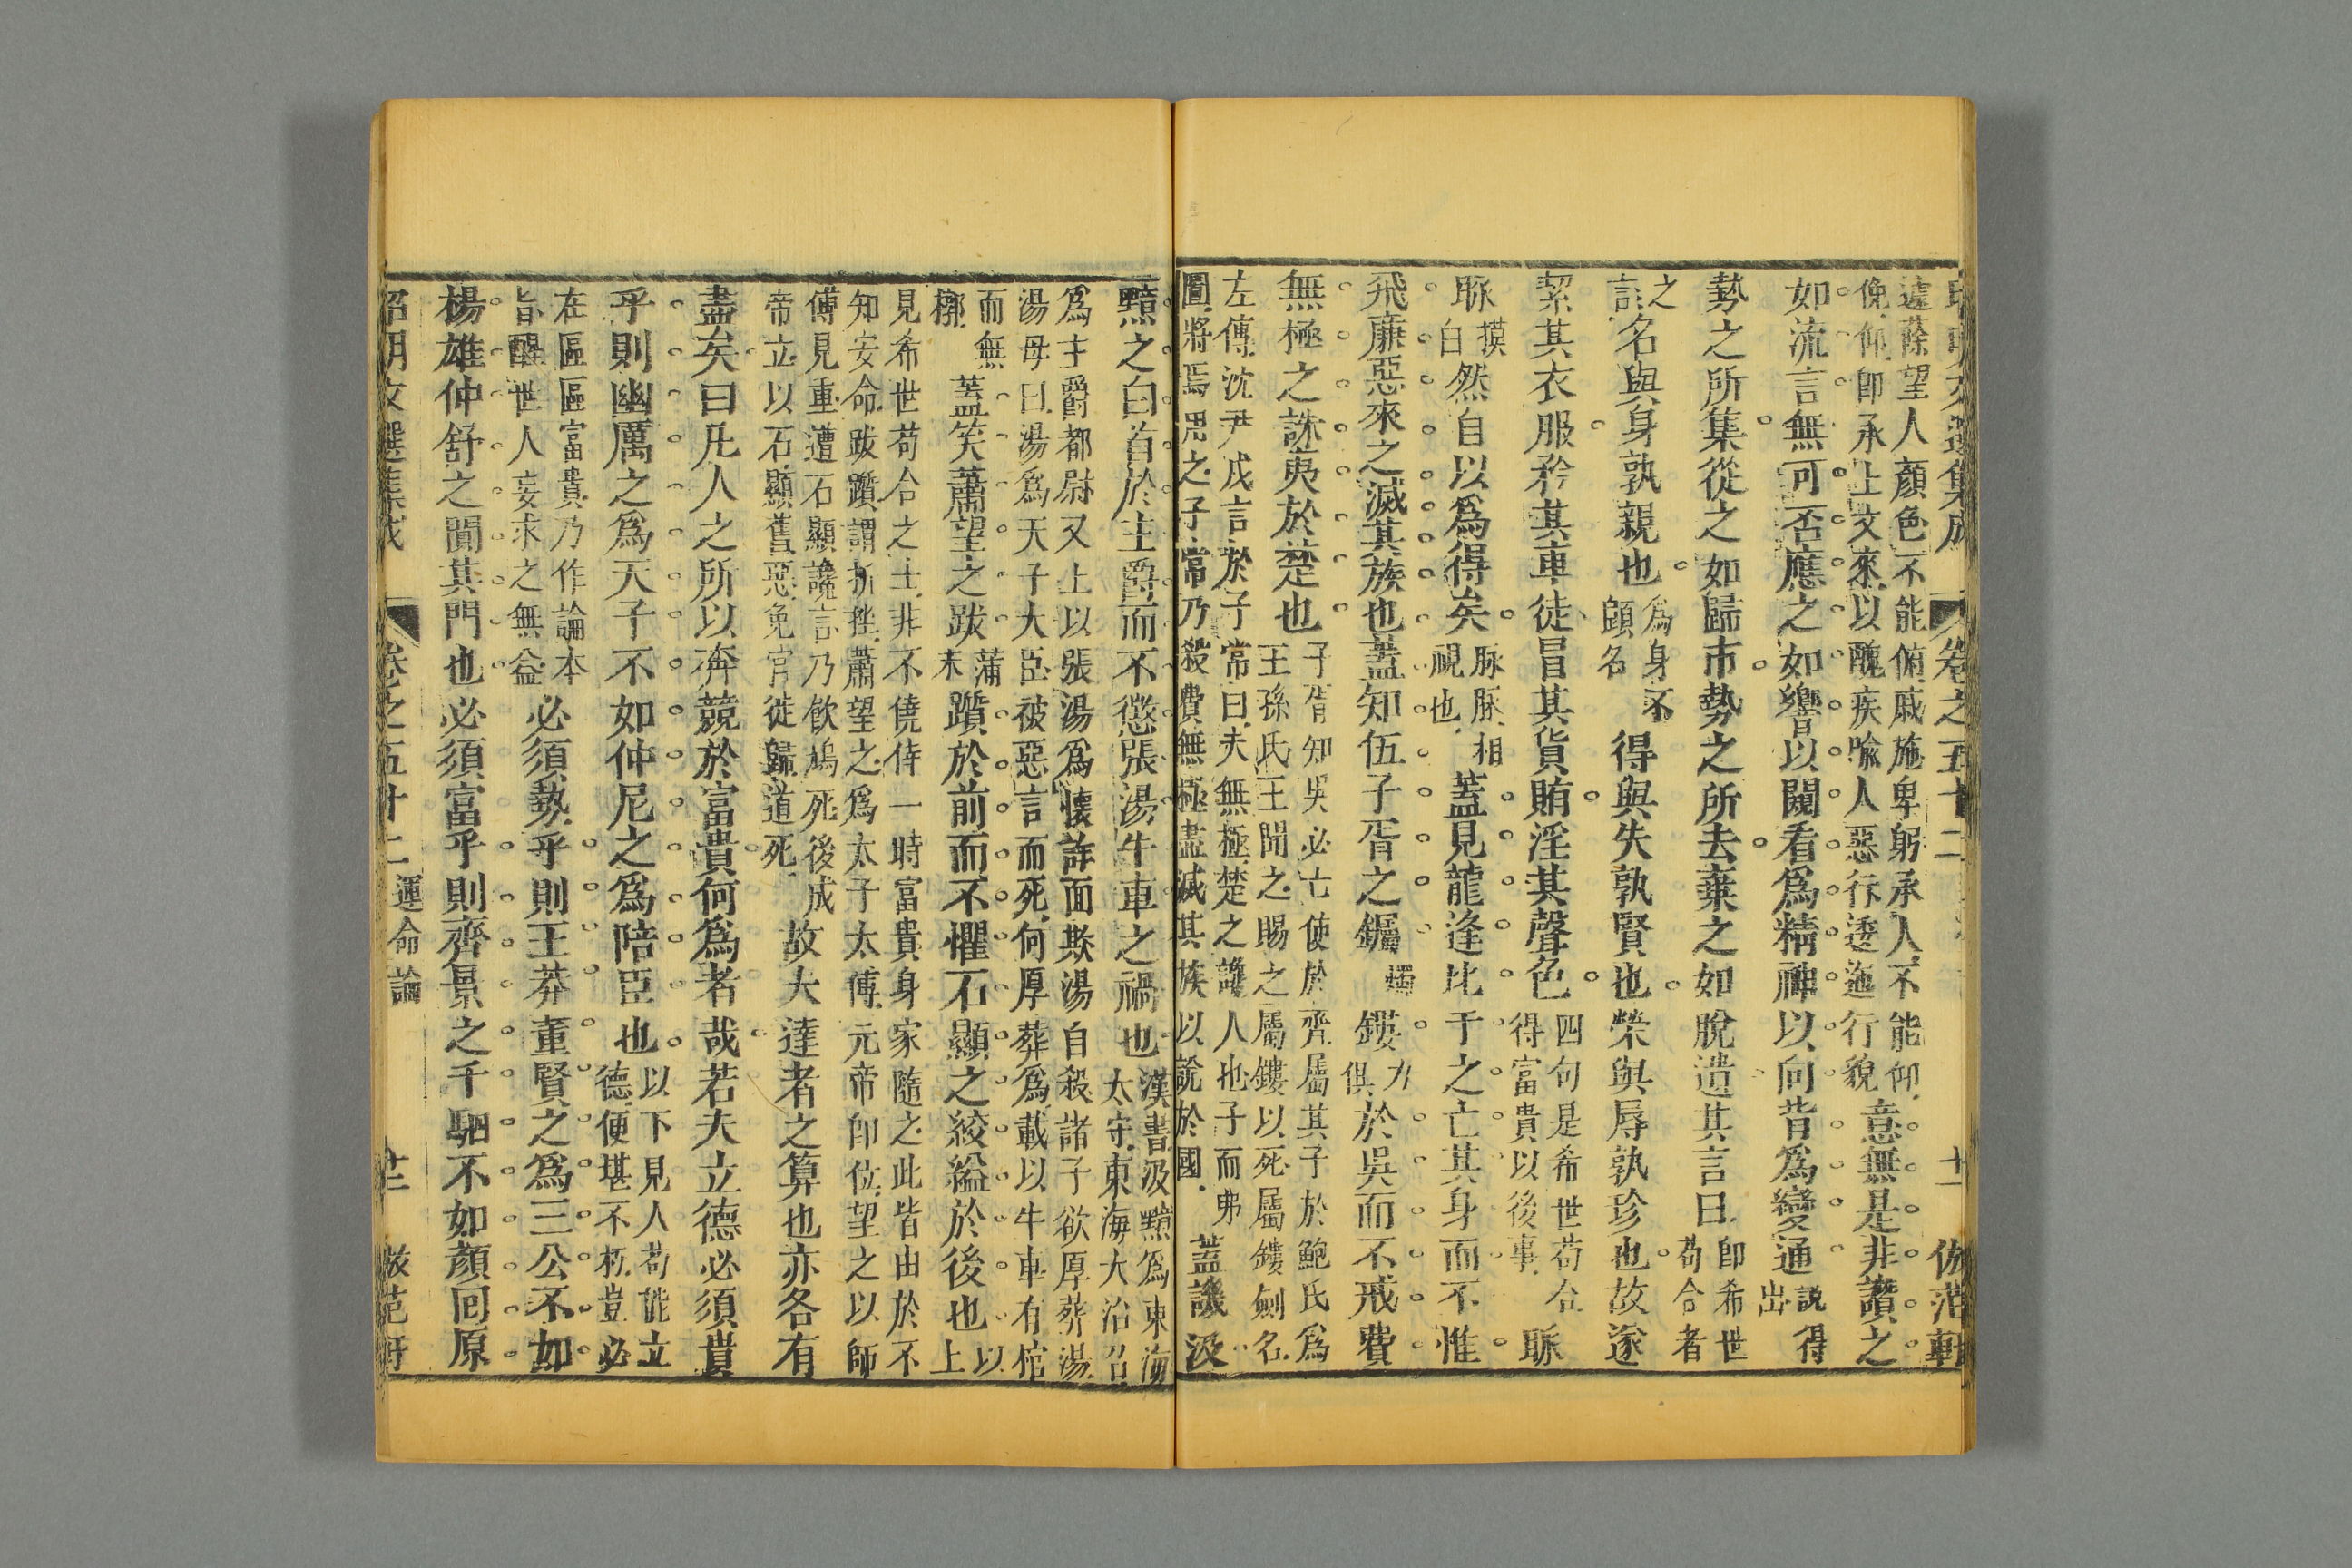 昭明文選集成　卷之五十二　十一　倣范軒
蘧蒢望人顏色不能俯戚施卑躬承人不能仰
俛仰即承上文來以醜疾喻人惡行逶迤行貌
意無是非讚之
如流言無可否應之如響以闚看爲精神以向背爲變通說出得
勢之所集從之如歸市勢之所去棄之如脫遺其言曰即希世苟合者
之言名與身孰親也爲身不顧名得與失孰賢也榮與辱孰珍也故遂
絜其衣服矜其車徒冒其貨賄淫其聲色四句是希世苟合得富貴以後事脈
脈摸白然自以爲得矣脈脈相視也蓋見龍逢比干之亡其身而不惟
飛廉惡來之滅其族也蓋知伍子胥之钃燭鏤力俱於吳而不戒費
無極之誅夷於楚也子胥知吳必亡使於齊屬其子於鮑氏爲
王孫氏王聞之賜之屬鏤以死屬鏤劍名
左傳沈尹戌言於子常曰夫無極楚之讒人也子而弗
圖將焉用之子常乃殺費無極盡滅其族以說於國
蓋譏汲
黯之白首於主爵而不懲張湯牛車之禍也漢書汲黯爲東海
太守東海大治召
爲主爵都尉又上以張湯爲懷詐面欺湯自殺諸子欲厚葬湯
湯母曰湯爲天子大臣被惡言而死何厚葬爲載以牛車有棺
而無槨蓋笑蕭望之跋蒲末躓於前而不懼石顯之絞縊於後也以上
見希世苟合之士非不僥倖一時富貴身家隨之此皆由於不
知安命跋躓謂折挫蕭望之爲太子太傅元帝即位望之以師
傅見重遭石顯讒言乃飲鴆死後成
帝立以石顯舊惡免官徙歸道死
故夫達者之算也亦各有
盡矣曰凡人之所以奔競於富貴何爲者哉若夫立德必須貴
乎則幽厲之爲天子不如仲尼之爲陪臣也以下見人苟能立
德便堪不朽豈必
在區區富貴乃作論本
旨醒世人妄求之無益
必須勢乎則王莽董賢之爲三公不如
楊雄仲舒之闃其門也必須富乎則齊景之千駟不如顏回原
昭明文選集成　卷之五十二　運命論　十二　倣范軒